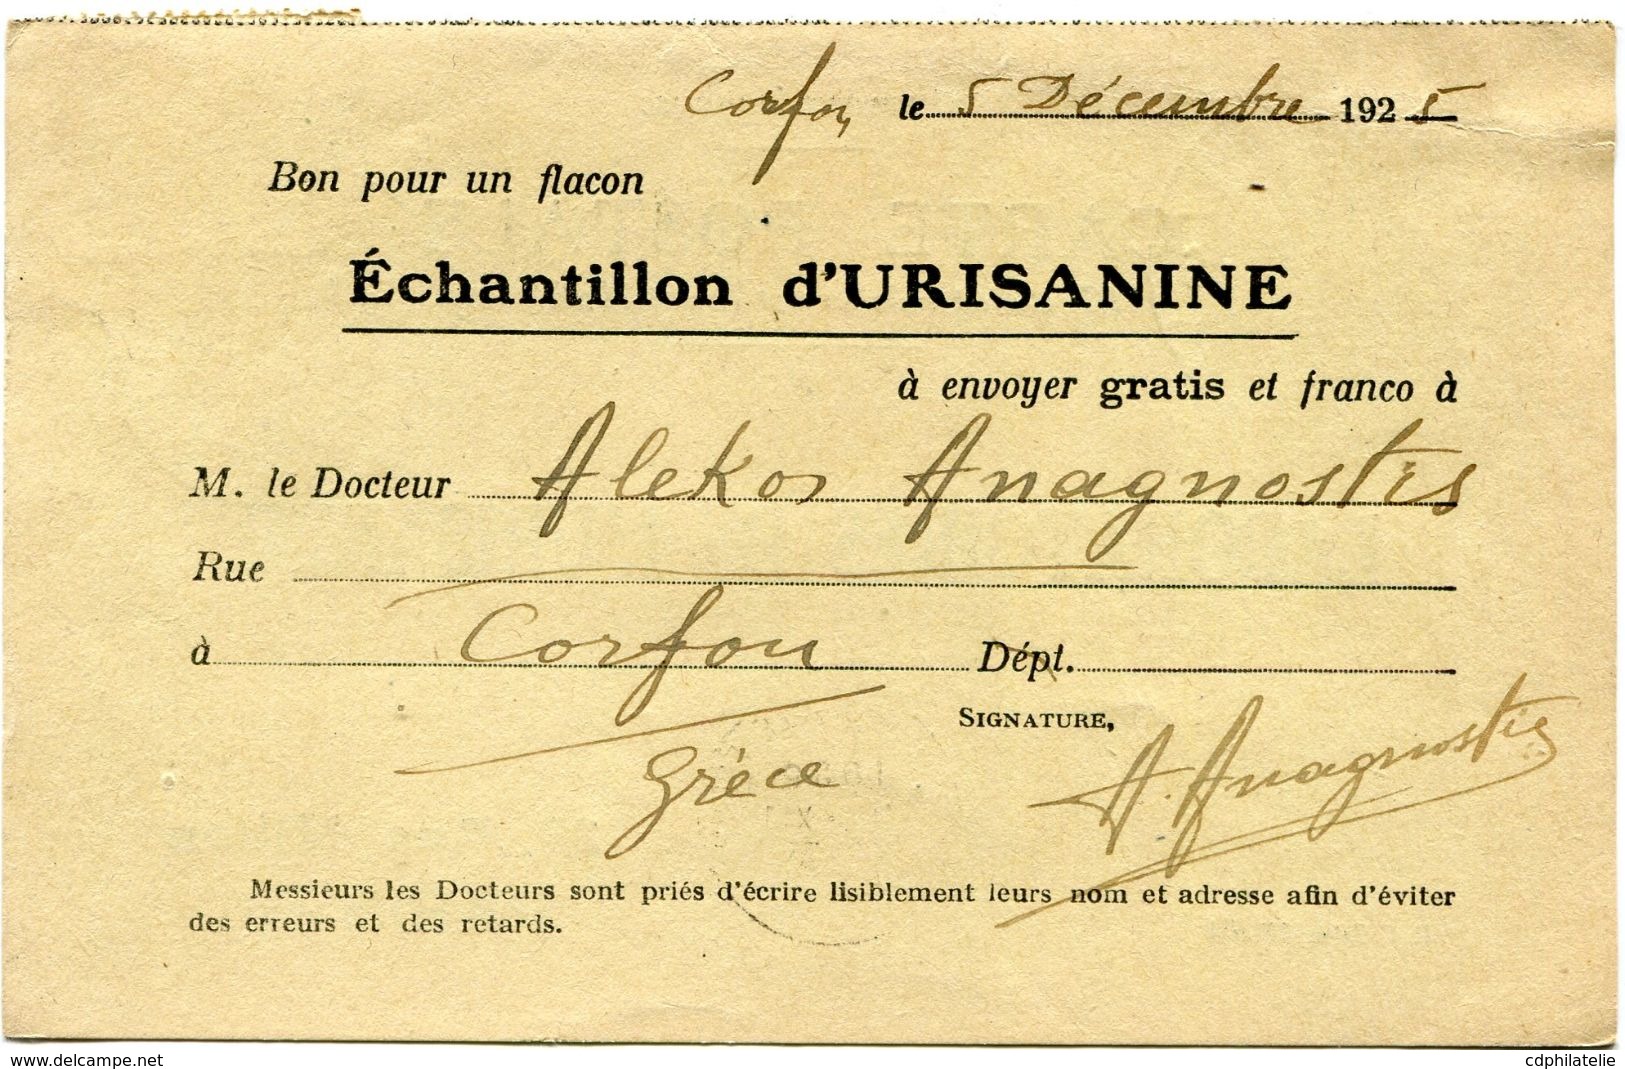 Corfou, le 5 Décembre 1925
Bon pour un flacon
Échantillon d'URISANINE
à envoyer gratis et franco à
M. le Docteur Alekos Anagnostis
Rue
à Corfou Dépt.
SIGNATURE,
Grèce A. Anagnostis
Messieurs les Docteurs sont priés d'écrire lisiblement leurs nom et adresse afin d'éviter
des erreurs et des retards.
www.delcampe.net cdphilatelie